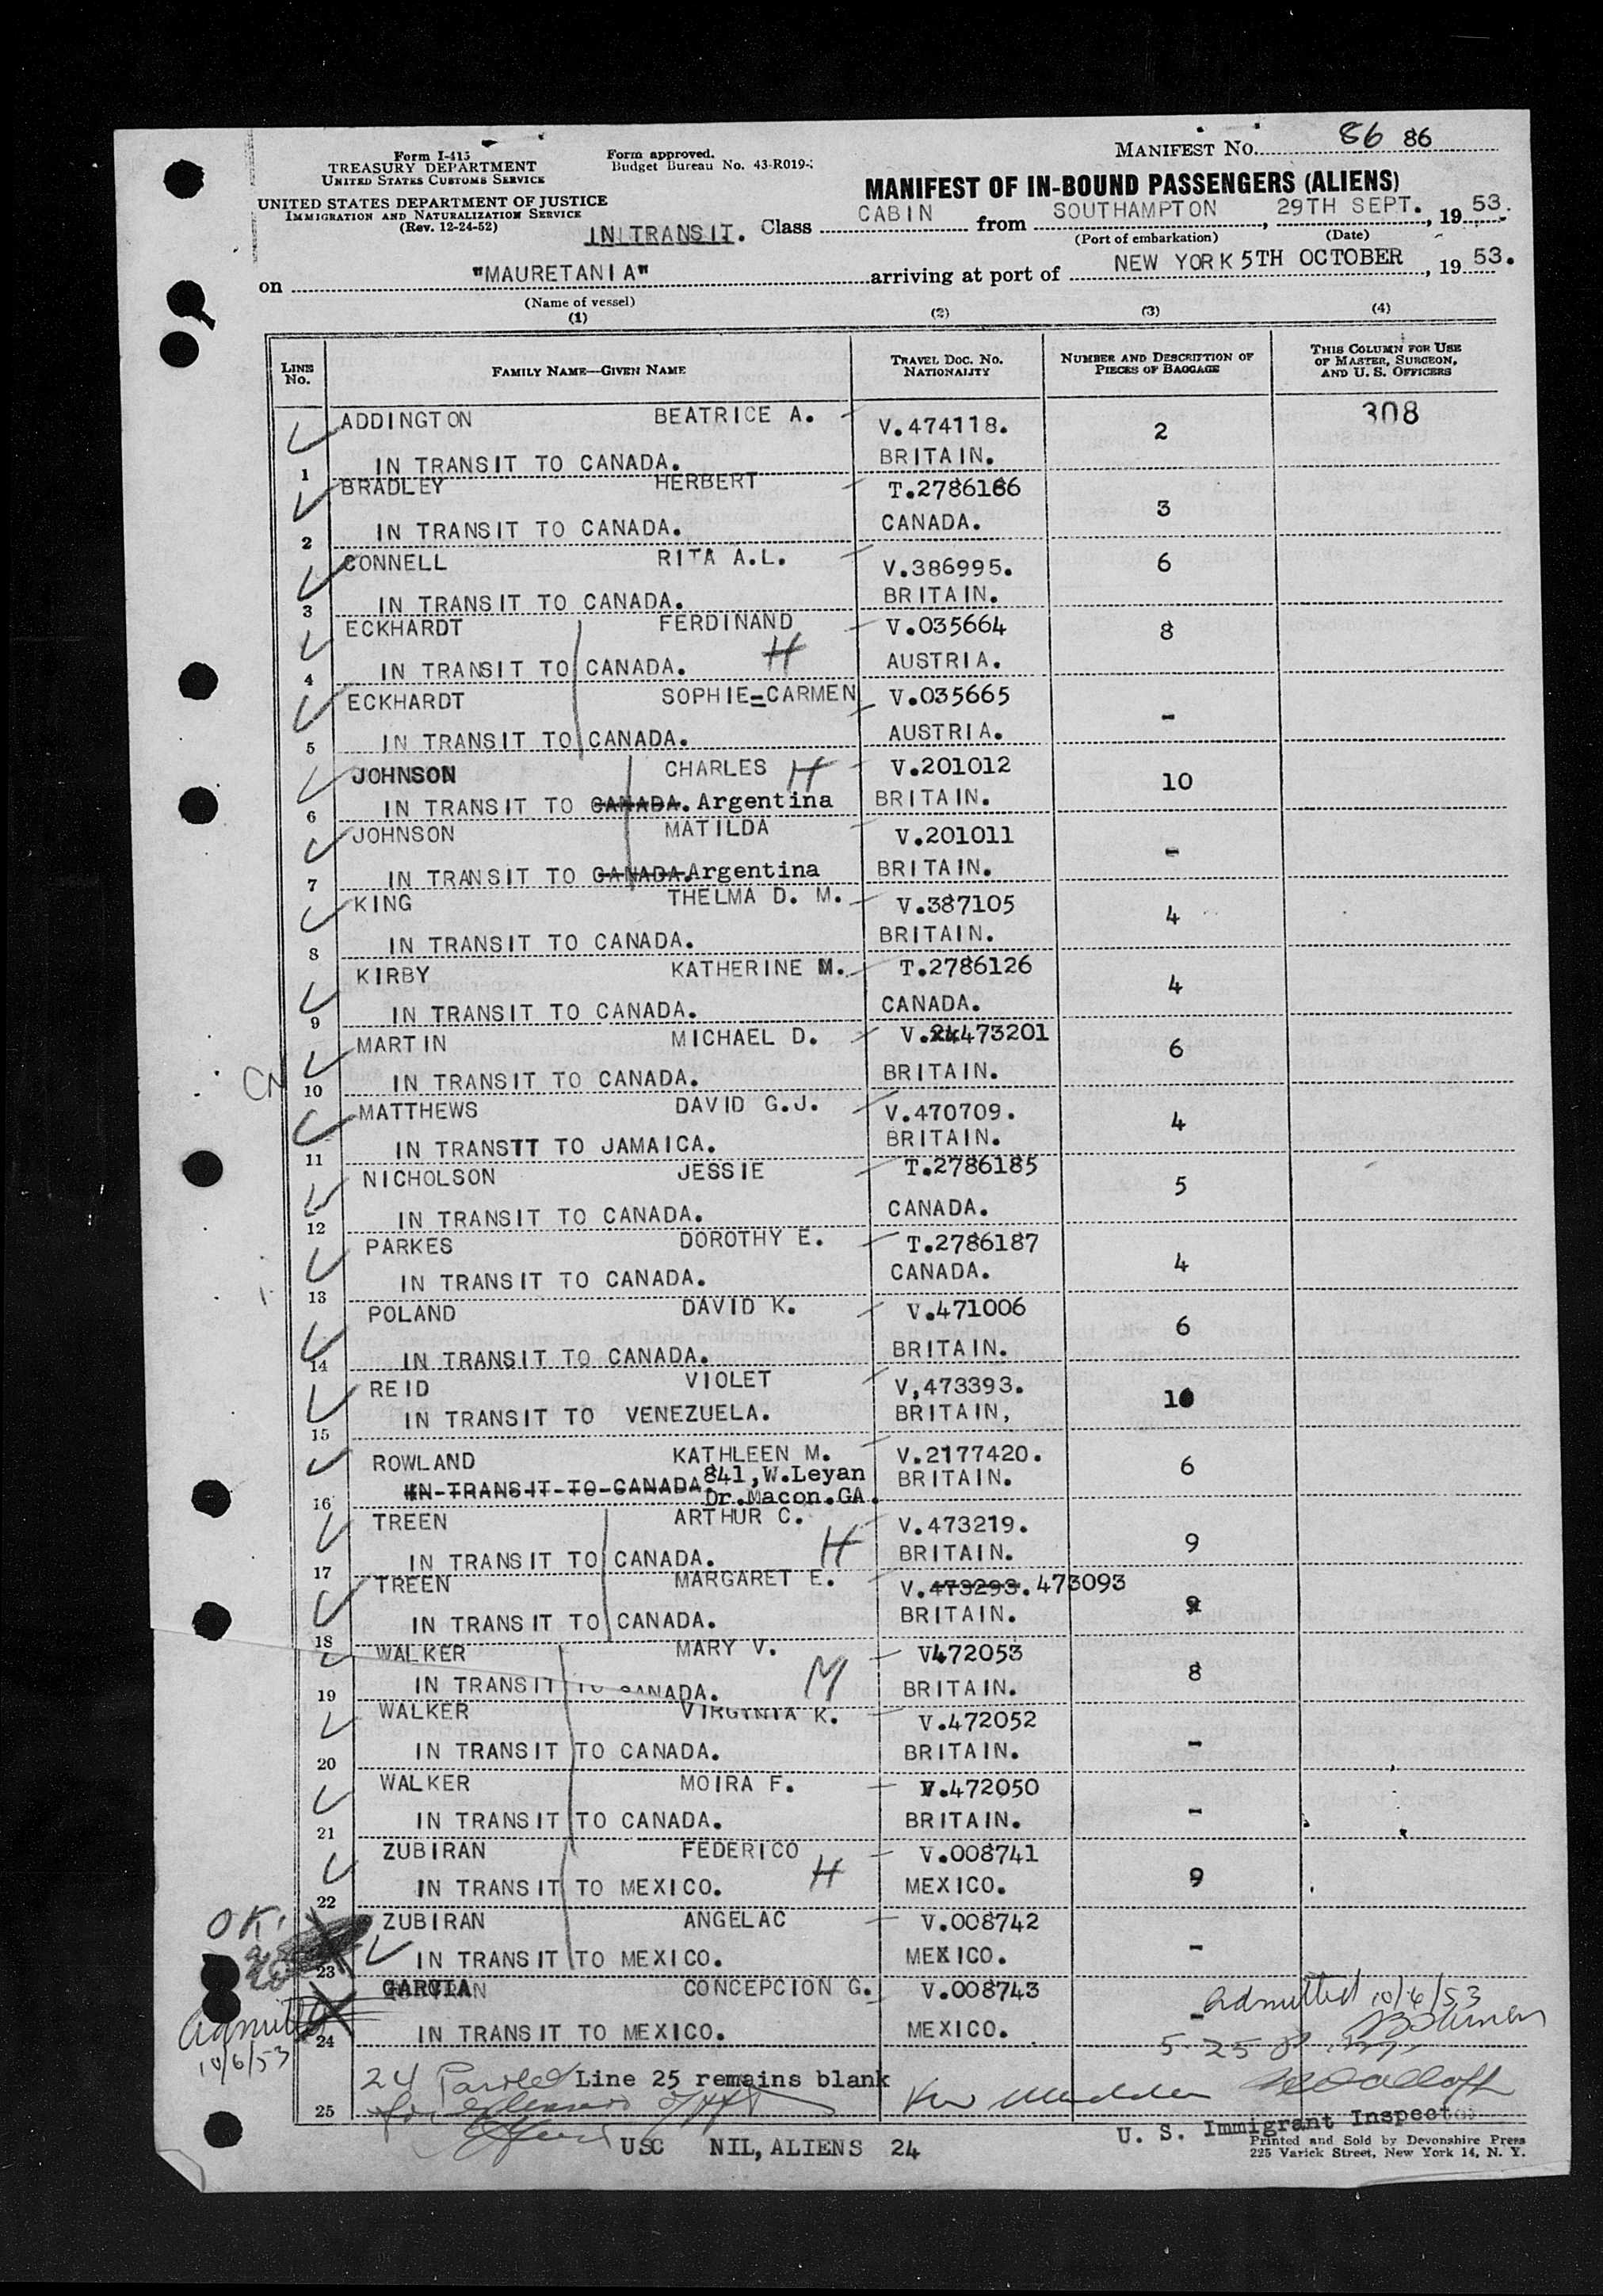 MANIFEST NO. 86 86
Form I-415
TREASURY DEPARTMENT
UNITED STATES CUSTOMS SERVICE
Form approved.
Budget Bureau No. 43-R019-
UNITED STATES DEPARTMENT OF JUSTICE
IMMIGRATION AND NATURALIZATION SERVICE
(Rev. 12-24-52)
MANIFEST OF IN-BOUND PASSENGERS (ALIENS)
IN TRANSIT. Class CABIN from SOUTHAMPTON, 29TH SEPT., 19 53.
(Port of embarkation) (Date)
on "MAURETANIA" arriving at port of NEW YORK 5TH OCTOBER, 19 53.
(Name of vessel)
(1) (2) (3) (4)
LINE NO. FAMILY NAME—GIVEN NAME TRAVEL DOC. NO. NATIONALITY NUMBER AND DESCRIPTION OF PIECES OF BAGGAGE THIS COLUMN FOR USE OF MASTER, SURGEON, AND U. S. OFFICERS
ADDINGTON BEATRICE A. V.474118. 2 308
1 IN TRANSIT TO CANADA. BRITAIN.
BRADLEY HERBERT T.2786186 3
2 IN TRANSIT TO CANADA. CANADA.
CONNELL RITA A.L. V.386995. 6
3 IN TRANSIT TO CANADA. BRITAIN.
ECKHARDT FERDINAND V.035664 8
4 IN TRANSIT TO CANADA. H AUSTRIA.
ECKHARDT SOPHIE=CARMEN V.035665 -
5 IN TRANSIT TO CANADA. AUSTRIA.
JOHNSON CHARLES H V.201012 10
6 IN TRANSIT TO CANADA. Argentina BRITAIN.
JOHNSON MATILDA V.201011 -
7 IN TRANSIT TO CANADA. Argentina BRITAIN.
KING THELMA D. M. V.387105 4
8 IN TRANSIT TO CANADA. BRITAIN.
KIRBY KATHERINE M. T.2786126 4
9 IN TRANSIT TO CANADA. CANADA.
MARTIN MICHAEL D. V.473201 6
10 IN TRANSIT TO CANADA. BRITAIN.
MATTHEWS DAVID G.J. V.470709. 4
11 IN TRANSTT TO JAMAICA. BRITAIN.
NICHOLSON JESSIE T.2786185 5
12 IN TRANSIT TO CANADA. CANADA.
PARKES DOROTHY E. T.2786187 4
13 IN TRANSIT TO CANADA. CANADA.
POLAND DAVID K. V.471006 6
14 IN TRANSIT TO CANADA. BRITAIN.
REID VIOLET V,473393. 10
15 IN TRANSIT TO VENEZUELA. BRITAIN,
ROWLAND KATHLEEN M. V.2177420. 6
16 IN TRANSIT TO CANADA. 841, W.Leyan Dr.Macon.GA. BRITAIN.
TREEN ARTHUR C. V.473219. 9
17 IN TRANSIT TO CANADA. H BRITAIN.
TREEN MARGARET E. V.473293. 473093
18 IN TRANSIT TO CANADA. BRITAIN.
WALKER MARY V. V472053 8
19 IN TRANSIT TO CANADA. M BRITAIN.
WALKER VIRGINIA K. V.472052 -
20 IN TRANSIT TO CANADA. BRITAIN.
WALKER MOIRA F. V.472050 -
21 IN TRANSIT TO CANADA. BRITAIN.
ZUBIRAN FEDERICO V.008741 9
22 IN TRANSIT TO MEXICO. H MEXICO.
OK.
ZUBIRAN ANGELAC V.008742 -
23 IN TRANSIT TO MEXICO. MEXICO.
GARCIA CONCEPCION G. V.008743 -
Admitted 10/6/53
24 IN TRANSIT TO MEXICO. MEXICO.
10/6/53
24 Line 25 remains blank
25
USC NIL, ALIENS 24
U. S. Immigrant Inspector
Printed and Sold by Devonshire Press
225 Varick Street, New York 14, N. Y.